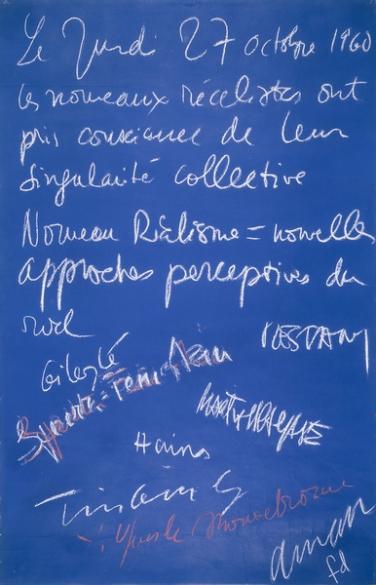 Le Jeudi 27 octobre 1960
les nouveaux réalistes ont
pris conscience de leur
singularité collective
Nouveau Réalisme = nouvelles
approches perceptives du
réel
RESTANY
Hains
Tinguely
Yves le monochrome
arman
fd